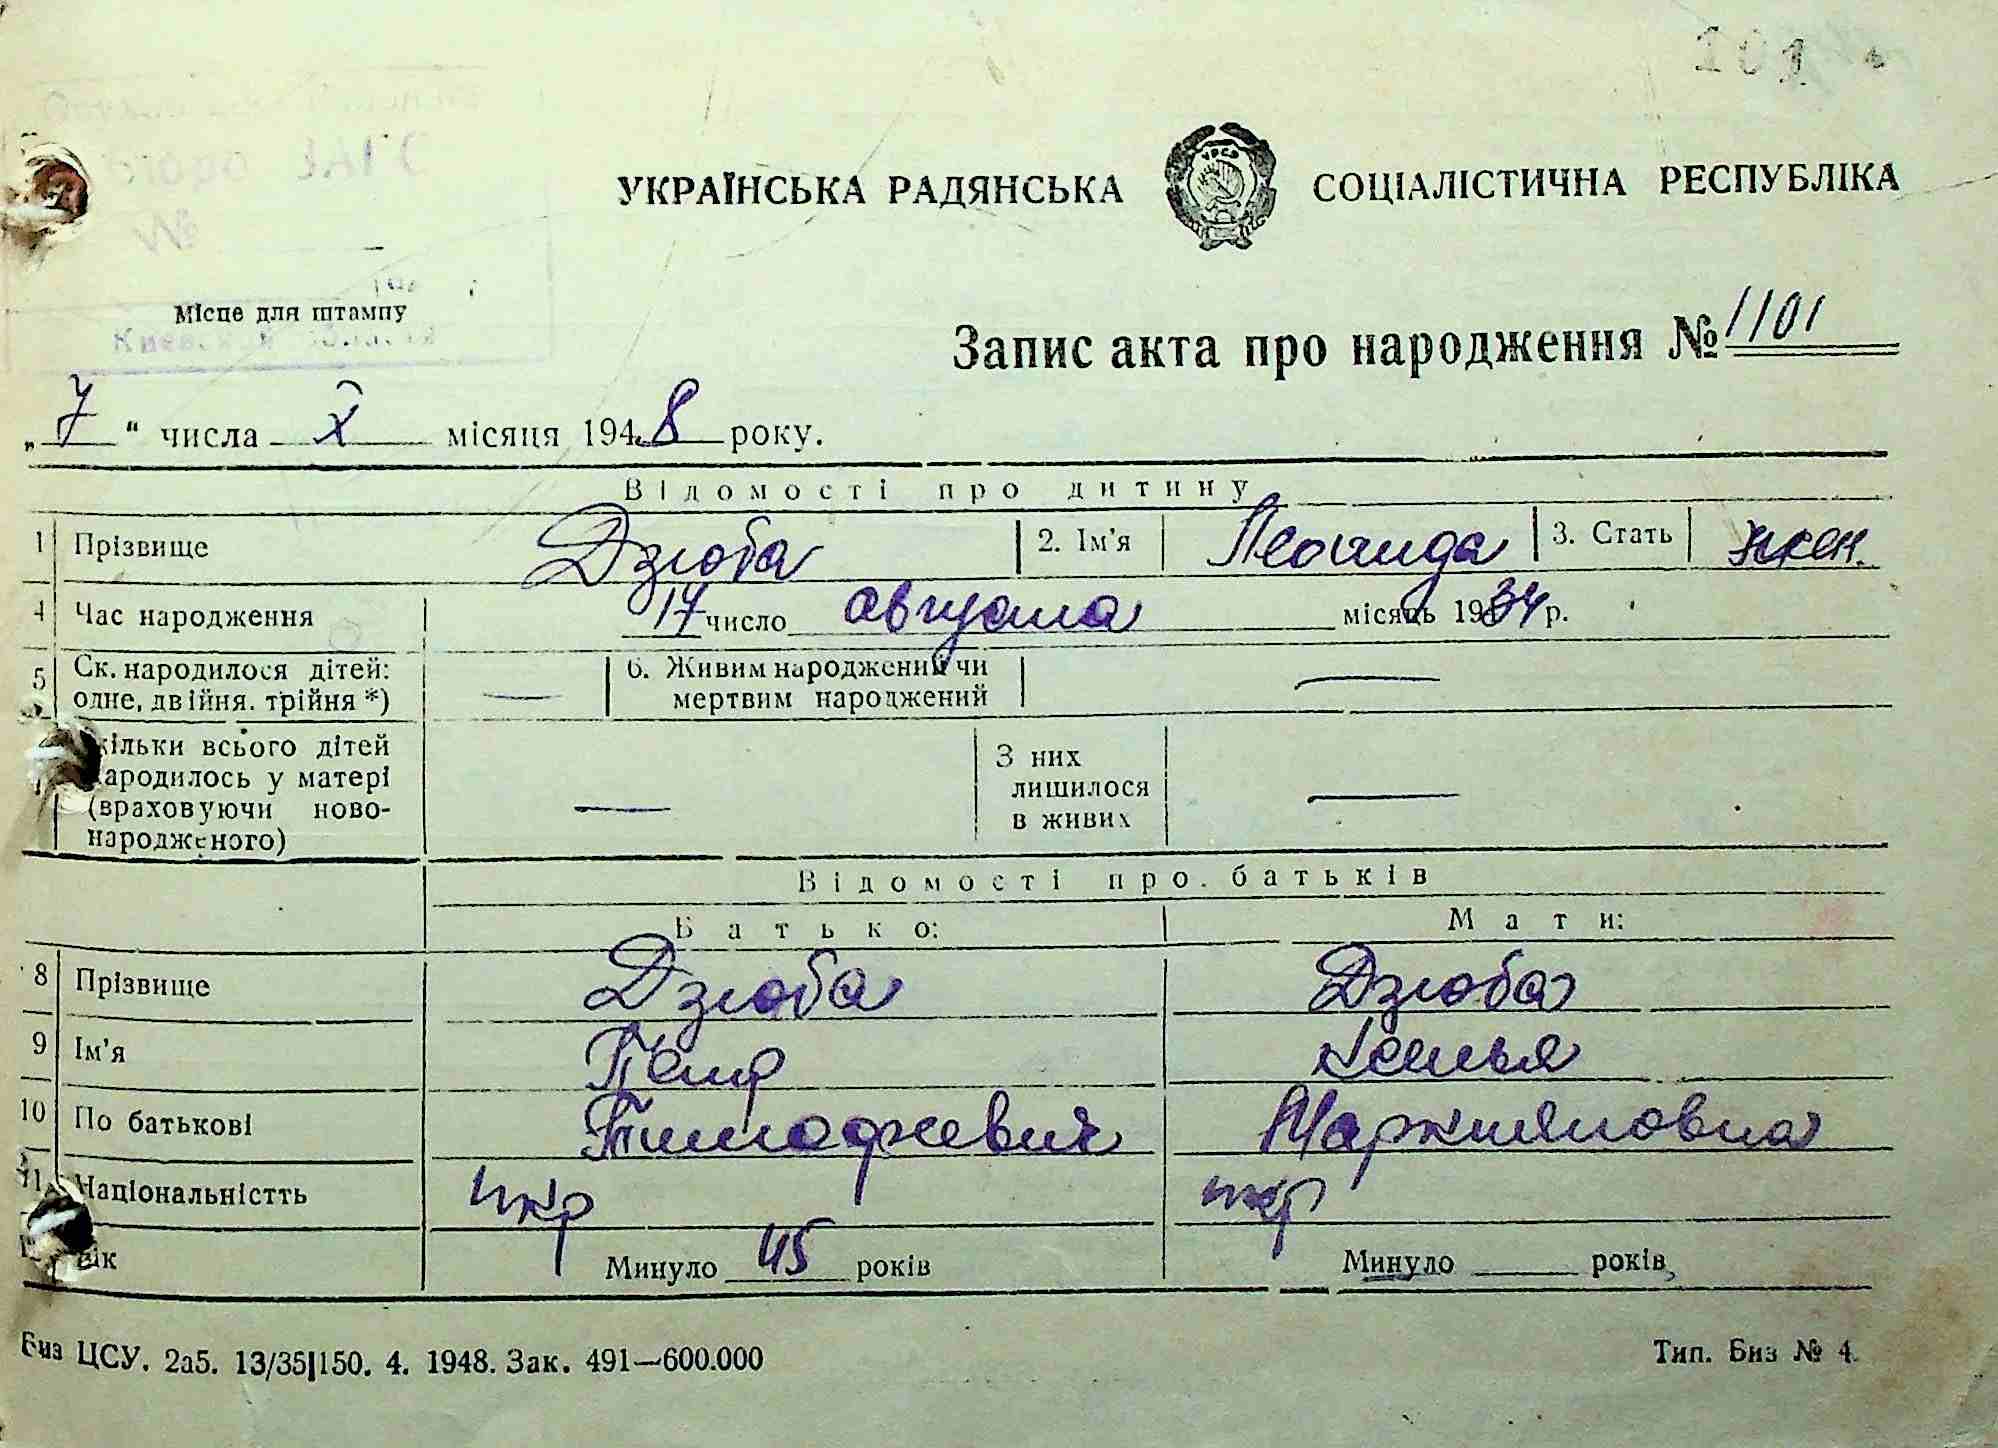 101
УКРАЇНСЬКА РАДЯНСЬКА СОЦІАЛІСТИЧНА РЕСПУБЛІКА
№
Місце для штампу
Запис акта про народження № 1101
„7“ числа X місяця 1948 року.
Відомості про дитину
1 Прізвище Дзюба 2. Ім'я Леонида 3. Стать жен.
4 Час народження 17 число августа місяць 1934 р.
5 Ск. народилося дітей: одне, двійня. трійня *) — 6. Живим народжений чи мертвим народжений —
кільки всього дітей народилось у матері (враховуючи новонародженого) — З них лишилося в живих —
Відомості про батьків
Батько: Мати:
8 Прізвище Дзюба Дзюба
9 Ім'я Петр Ксенья
10 По батькові Тимофеевич
11 Національністть укр укр
вік Минуло 45 років Минуло років
Биз ЦСУ. 2а5. 13/35|150. 4. 1948. Зак. 491—600.000 Тип. Биз № 4.